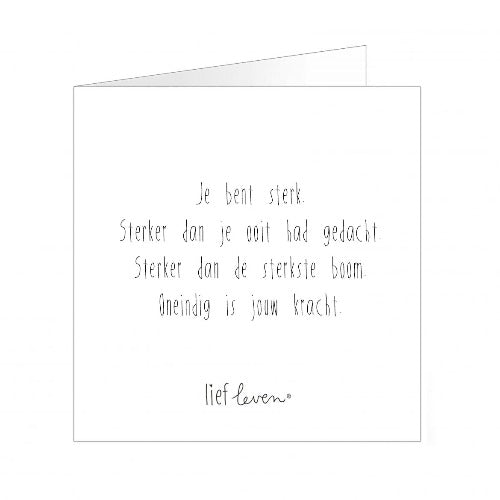 Je bent sterk.
Sterker dan je ooit had gedacht.
Sterker dan de sterkste boom.
Oneindig is jouw kracht.
lief leven®